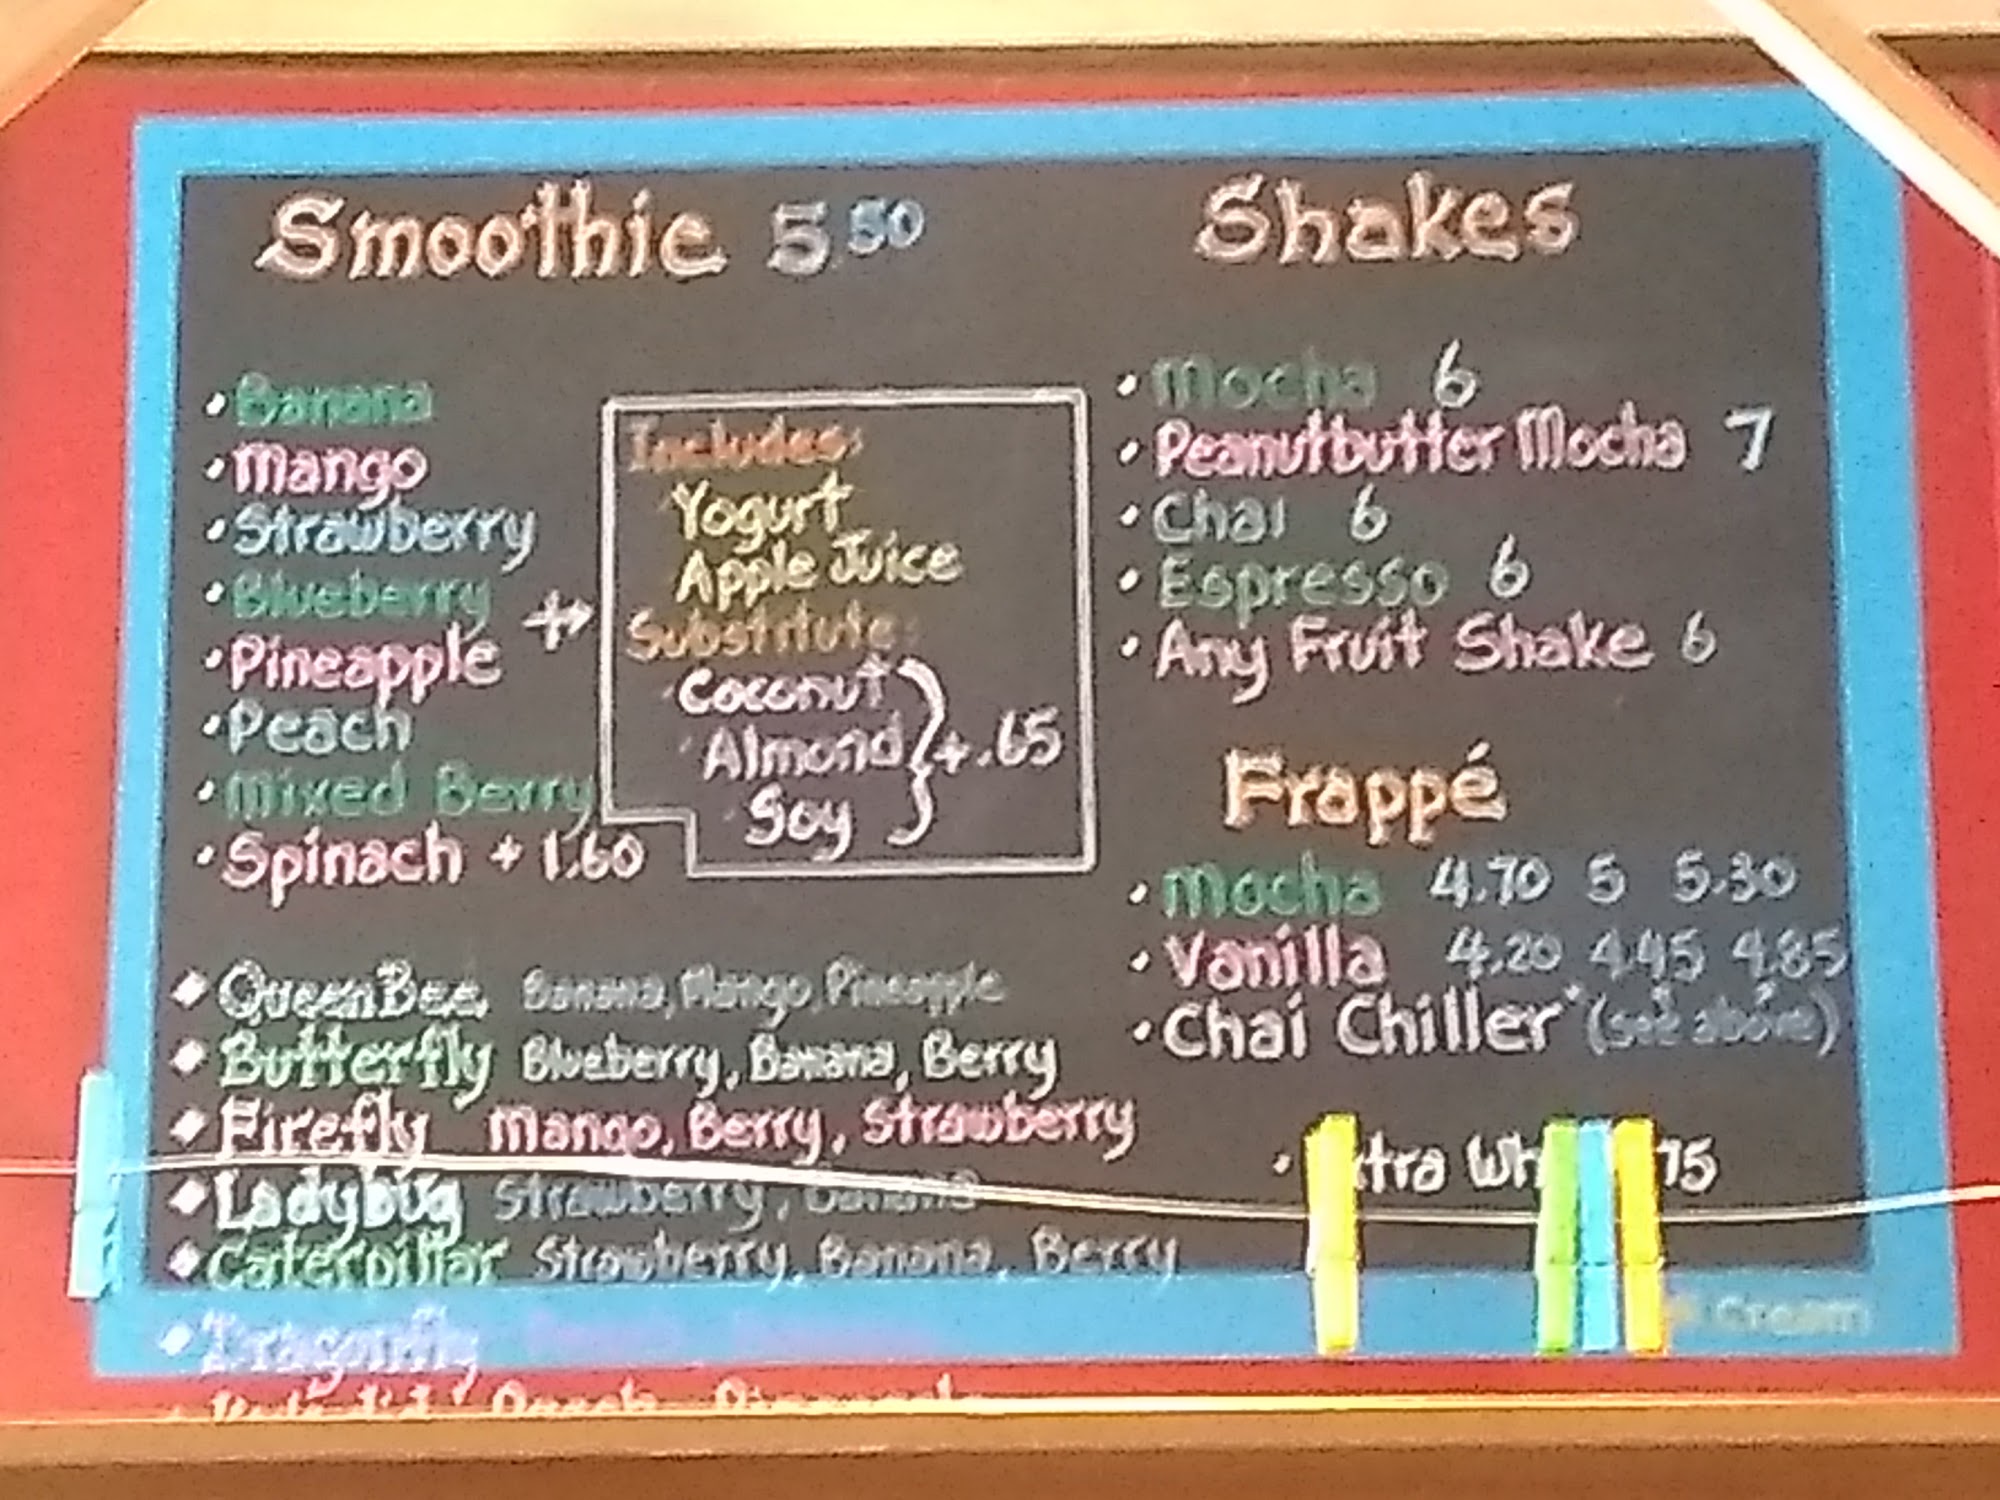 Smoothie 5.50
• Banana
• Mango
• Strawberry
• Blueberry
• Pineapple
• Peach
• Mixed Berry
• Spinach + 1.60
+→
Includes:
Yogurt
Apple Juice
Substitute:
Coconut
Almond
Soy
} +.65
◆ Queen Bee Banana, Mango, Pineapple
◆ Butterfly Blueberry, Banana, Berry
◆ Firefly Mango, Berry, Strawberry
◆ Ladybug Strawberry, Banana
◆ Caterpillar Strawberry, Banana, Berry
◆ Dragonfly
Shakes
• Mocha 6
• Peanutbutter Mocha 7
• Chai 6
• Espresso 6
• Any Fruit Shake 6
Frappé
• Mocha 4.70 5 5.30
• Vanilla 4.20 4.45 4.85
• Chai Chiller* (see above)
• xtra Wh 75
Cream